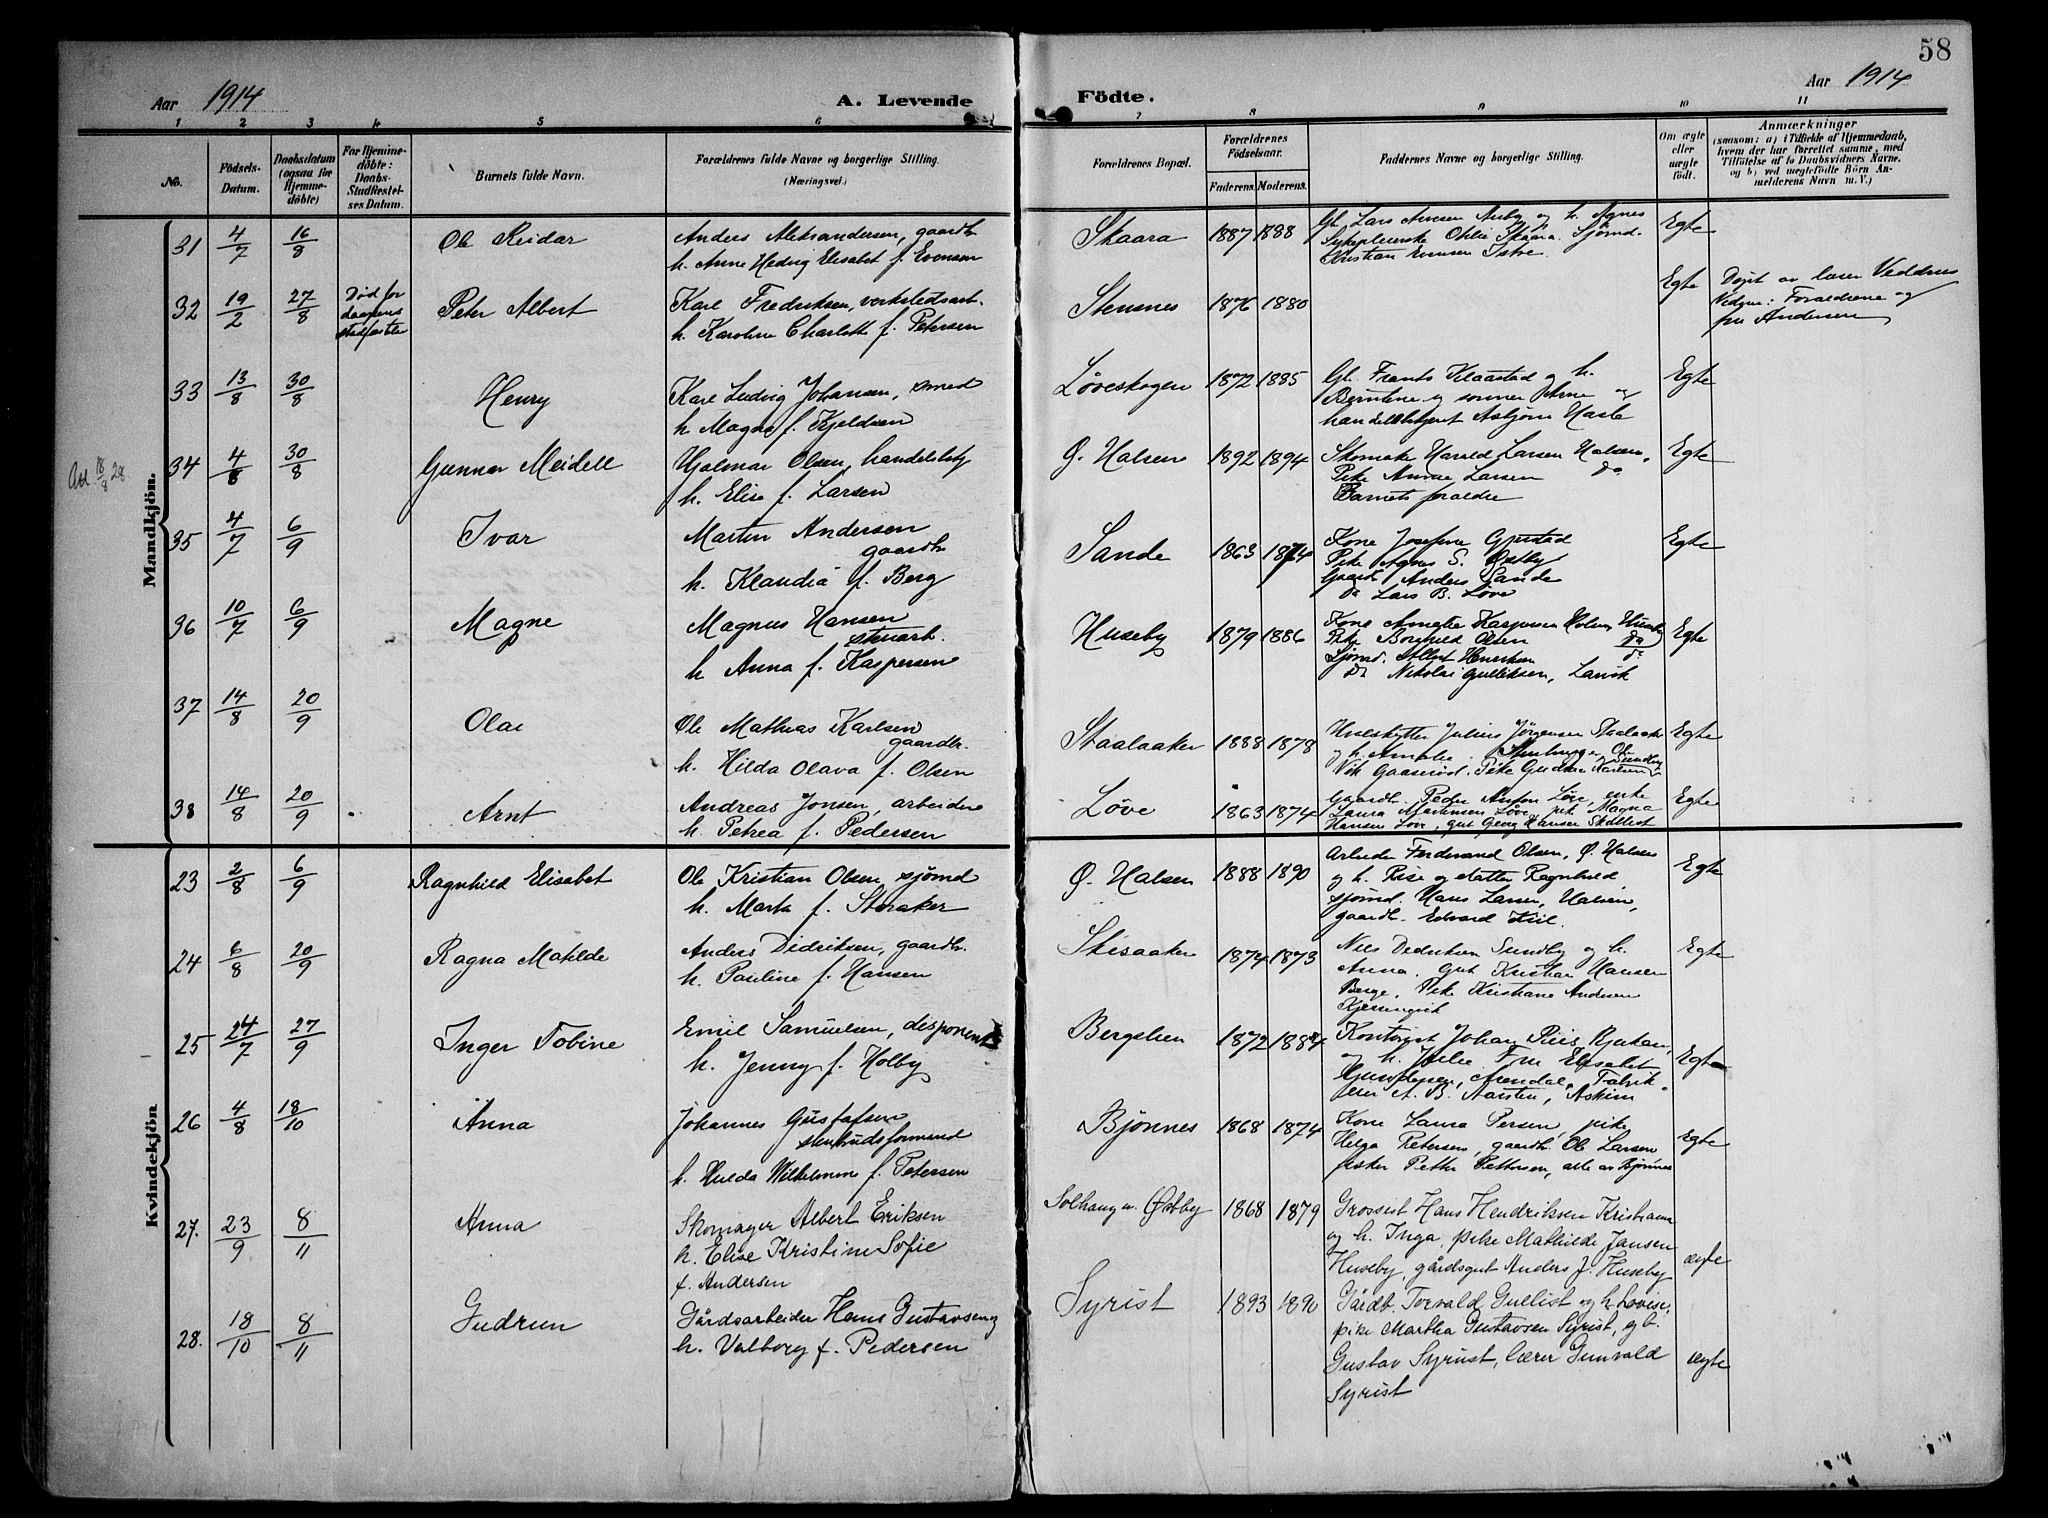 58
Aar 1914
A. Levende
Födte.
Aar 1914
1 2 3 4 5 6 7 8 9 10 11
No.
Födsels-
Datum.
Daabsdatum
(ogsaa for
Hjemme-
döbte)
For Hjemme-
döbte:
Daabs-
Stadfæstel-
ses Datum.
Barnets fulde Navn.
Forældrenes fulde Navne og borgerlige Stilling.
(Næringsvei.)
Forældrenes Bopæl.
Forældrenes
Födselsaar.
Faderens. Moderens.
Faddernes Navne og borgerlige Stilling.
Om ægte
eller
uægte
født.
Anmærkninger
(saasom: a) i Tilfælde af Hjemmedaab,
hvem der har forrettet samme, med
Tilföielse af to Daabsvidners Navne,
og b) ved uægtefödte Börn An-
melderens Navn m. V.)
Mandkjön.
31 4/7 16/8 Ole Reidar
Anders Aleksandersen, gaardbr.
h. Anne Hedvig Elisabet f. Evensen
Skaara 1887 1888
Gb. Lars Arnesen Auby og h. Agnes
Sykepleierske Othlie Skaara. Sjömd.
Kristian Evensen Istre.
Egte
32 19/2 27/8
Död for
daapens
stadfæstelse
Peter Albert
Karl Fredriksen, verkstedsarb.
h. Karoline Charlotte f. Petersen
Stensnes 1876 1880 Egte
Døpt av lærer Veddnes
Vidner: Forældrene og
fru Andersen
33 13/8 30/8 Henry
Karl Ludvig Johansen, smed
h. Magna f. Kjeldsen
Løveskogen 1872 1885
Gb. Frants Klaastad og h.
Berntine og sønner Arne og
handelsbetjent Asbjörn Hasle
Egte
34 4/8 30/8 Gunnar Meidell
Hjalmar Olsen, handelsbetj.
h. Elise f. Larsen
Ø. Halsen 1892 1894
Skomaker Harald Larsen Halsen,
Pike Anna Larsen do
Barnets forældre
Egte
35 4/7 6/9 Ivar
Martin Andersen
gaardbr.
h. Klaudia f. Berg
Sande 1863 1874
Kone Josefine Gjerstad
Pike Agnes S. Østby
Gaardb. Anders Sande
do Lars B. Løve
Egte
36 10/7 6/9 Magne
Magnus Hansen
stenarb.
h Anna f. Kaspersen
Huseby 1879 1886
Pike Borghild Olsen do
Sjömd. Albert Henriksen
do Nikolai Gulliksen, Larvik
Egte
37 14/8 20/9 Olai
Ole Mathias Karlsen
gaardbr.
h. Hilda Olava f. Olsen
Staalaaker 1888 1878
Hvalskytter Julius Jørgensen Staalaaker
og h. Amalie.
Egte
38 14/8 20/9 Arnt
Andreas Jonsen, arbeider
h. Petrea f. Pedersen
Løve 1863 1874
Gaardb. Peder Anton Løve, enke
Laura Martinsen Løve, pik Magna
Hansen Løve, gut Georg Hansen
Egte
Kvindekjön
23 2/8 6/9 Ragnhild Elisabet
Ole Kristian Olsen sjömd
h. Marta f. Storaker
Ø. Halsen 1888 1890
Arbeider Ferdinand Olsen, Ø. Halsen
og h. Risi og datter Ragnhild,
sjömd. Hans Larsen, Halsen,
gaardb. Edvard
Egte
24 6/8 20/9 Ragna Matilde
Anders Didriksen, gaardbr.
h. Pauline f. Hansen
Skisaaker 1874 1873
Nils Dedriksen Sundby og h.
Anna. gut Kristian Hansen
Berge, Pike Kristiane Andersen
Egte
25 24/7 27/9 Inger Tobine
Emil Samuelsen, disponent
h. Jenny f. Holby
Bergslien 1872 1884
Kontorist Johan Piiis Rjukan,
og h. Julie Fru Elisabet
Arendal, Fabrik-
eier A. B. Aarsten, Askim
Egte
26 4/8 18/10 Anna
Johannes Gustafsen
stenhusformand
h. Hulda Wilhelmine f. Petersen
Bjønnes 1868 1874
Kone Laura Persen, pike
Helga Petersen, gaardb. Ole Larsen
fisker Petter Pettersen, alle av Bjønnes
Egte
27. 23/9 8/11 Anna
Skomager Albert Eriksen
h. Elise Kristine Sofie
f. Andersen
Solhaug u. Østby 1868 1879
Grossist Hans Hendriksen Kristiania
og h. Inga, pike Mathilde Jansen
Huseby, gårdsgut Anders J. Huseby
ægte
28. 18/10 8/11 Gudrun
Gårdsarbeider Hans Gustavsen og
h. Valborg f. Pedersen
Syrist 1893 1890
Gårdb. Torvald Gullist og h. Lovise,
pike Martha Gustavsen Syrist, gb.
Gustav Syrist, lærer Gunvald
Syrist
ægte